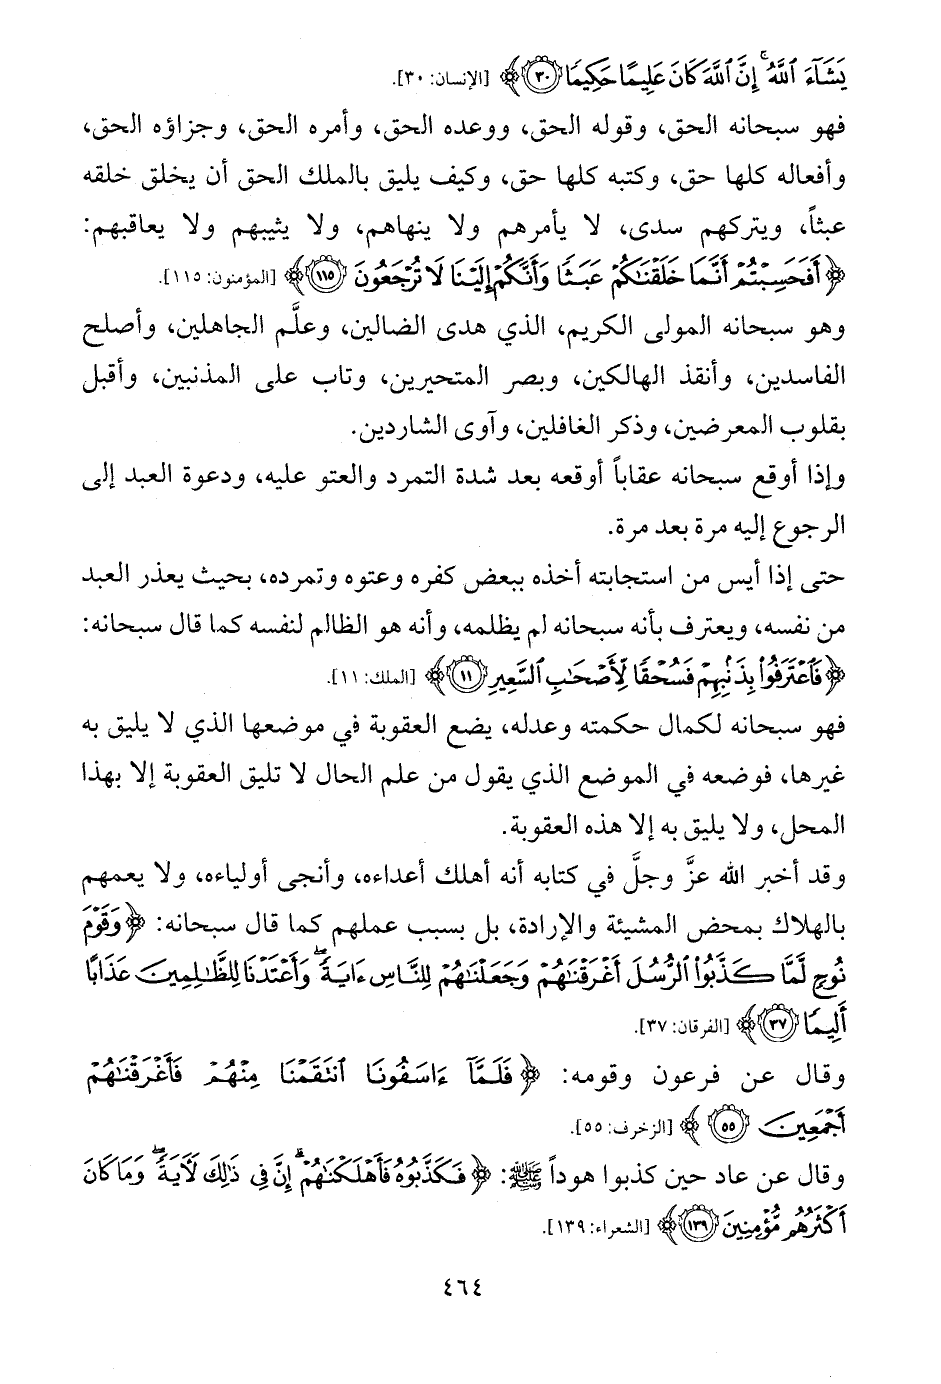 يَشَآءَ ٱللَّهُ ۚ إِنَّ ٱللَّهَ كَانَ عَلِيمًا حَكِيمًا ﴿٣٠﴾ ﴾ [الإنسان: ٣٠].
فهو سبحانه الحق، وقوله الحق، ووعده الحق، وأمره الحق، وجزاؤه الحق،
وأفعاله كلها حق، وكتبه كلها حق، وكيف يليق بالملك الحق أن يخلق خلقه
عبثاً، ويتركهم سدى، لا يأمرهم ولا ينهاهم، ولا يثيبهم ولا يعاقبهم:
﴿ أَفَحَسِبْتُمْ أَنَّمَا خَلَقْنَٰكُمْ عَبَثًا وَأَنَّكُمْ إِلَيْنَا لَا تُرْجَعُونَ ﴿١١٥﴾ ﴾ [المؤمنون: ١١٥].
وهو سبحانه المولى الكريم، الذي هدى الضالين، وعلَّم الجاهلين، وأصلح
الفاسدين، وأنقذ الهالكين، وبصر المتحيرين، وتاب على المذنبين، وأقبل
بقلوب المعرضين، وذكر الغافلين، وآوى الشاردين.
وإذا أوقع سبحانه عقاباً أوقعه بعد شدة التمرد والعتو عليه، ودعوة العبد إلى
الرجوع إليه مرة بعد مرة.
حتى إذا أيس من استجابته أخذه ببعض كفره وعتوه وتمرده، بحيث يعذر العبد
من نفسه، ويعترف بأنه سبحانه لم يظلمه، وأنه هو الظالم لنفسه كما قال سبحانه:
﴿ فَٱعْتَرَفُوا۟ بِذَنۢبِهِمْ فَسُحْقًا لِّأَصْحَٰبِ ٱلسَّعِيرِ ﴿١١﴾ ﴾ [الملك: ١١].
فهو سبحانه لكمال حكمته وعدله، يضع العقوبة في موضعها الذي لا يليق به
غيرها، فوضعه في الموضع الذي يقول من علم الحال لا تليق العقوبة إلا بهذا
المحل، ولا يليق به إلا هذه العقوبة.
وقد أخبر الله عزَّ وجلَّ في كتابه أنه أهلك أعداءه، وأنجى أولياءه، ولا يعمهم
بالهلاك بمحض المشيئة والإرادة، بل بسبب عملهم كما قال سبحانه: ﴿ وَقَوْمَ
نُوحٍ لَّمَّا كَذَّبُوا۟ ٱلرُّسُلَ أَغْرَقْنَٰهُمْ وَجَعَلْنَٰهُمْ لِلنَّاسِ ءَايَةً ۖ وَأَعْتَدْنَا لِلظَّٰلِمِينَ عَذَابًا
أَلِيمًا ﴿٣٧﴾ ﴾ [الفرقان: ٣٧].
وقال عن فرعون وقومه: ﴿ فَلَمَّآ ءَاسَفُونَا ٱنتَقَمْنَا مِنْهُمْ فَأَغْرَقْنَٰهُمْ
أَجْمَعِينَ ﴿٥٥﴾ ﴾ [الزخرف: ٥٥].
وقال عن عاد حين كذبوا هوداً ﷺ: ﴿ فَكَذَّبُوهُ فَأَهْلَكْنَٰهُمْ ۗ إِنَّ فِى ذَٰلِكَ لَءَايَةً ۖ وَمَا كَانَ
أَكْثَرُهُم مُّؤْمِنِينَ ﴿١٣٩﴾ ﴾ [الشعراء: ١٣٩].
٤٦٤